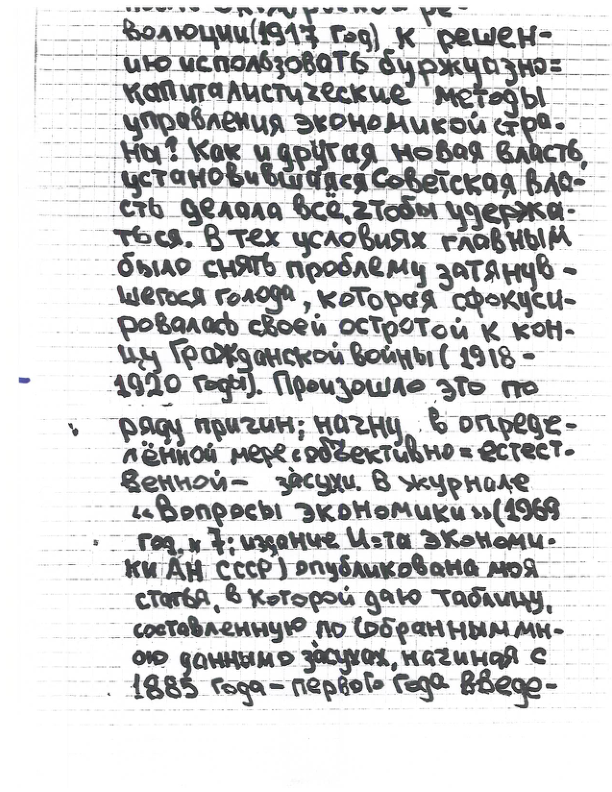 после Октябрьской ре-
волюции (1917 год) к решен-
ию использовать буржуазно=
капиталистические методы
управления экономикой стра-
ны? Как и другая новая власть,
установившаяся Советская вла-
сть делала всё, чтобы удержа-
ться. В тех условиях главным
было снять проблему затянув-
шегося голода, которая сфокуси-
ровалась своей остротой к кон-
цу Гражданской войны (1918-
1920 годы). Произошло это по
ряду причин; начну в опреде-
лённой мере с объективно=естест-
венной- засухи. В журнале
"Вопросы экономики" (1969
год, н 7; издание И-та экономи-
ки АН СССР) опубликована моя
статья, в которой даю таблицу,
составленную по собранным мн-
ою данным о засухах, начиная с
1885 года - первого года введе-